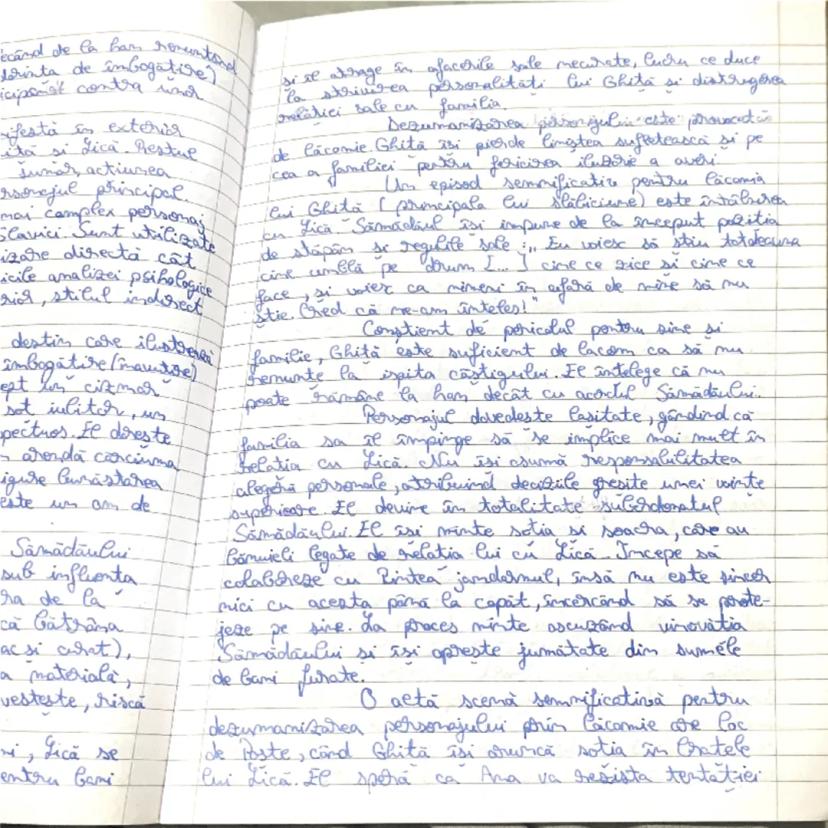 ecând de la han renunțând
dorința de îmbogățire)
contra unor
ifestă în exterior
iță și Lică. Restul
sumar, acțiunea
rsonajul principal.
mai complex personaj
Slavici. Sunt utilizate
izare directă cât
icile analizei psihologice
rior, stilul indirect
destin care ilustrează
îmbogățire (înavuțire)
ept un cizmar
soț iubitor, un
pectuos. El dorește
arendă cârciuma
igure bunăstarea
este un om de
Sămădăului
sub influența
ra de la
că bătrâna
ac și curat),
a materială,
vestește, riscă
ni, Lică se
entru bani
și îl atrage în afacerile sale necurate, lucru ce duce
la strivirea personalității lui Ghiță și distrugerea
relației sale cu familia.
Dezumanizarea personajului este provocată
de lăcomie. Ghiță își pierde liniștea sufletească și pe
cea a familiei pentru fericirea iluzorie a averi
Un episod semnificativ pentru lăcomia
lui Ghiță (principala lui slăbiciune) este întâlnirea
cu Lică. Sămădăul își impune de la început poziția
de stăpân și regulile sale: „Eu voiesc să știu totdeauna
cine umblă pe drum [...] cine ce zice și cine ce
face, și voiesc ca nimeni în afară de mine să nu
știe. Cred că ne-am înteles!"
Conștient de pericolul pentru sine și
familie, Ghiță este suficient de lacom ca să nu
renunțe la ispita câștigului. El înțelege că nu
poate rămâne la han decât cu acordul Sămădăului.
Personajul dovedește lașitate, gândind că
familia sa îl împinge să se implice mai mult în
relația cu Lică. Nu își asumă responsabilitatea
alegerii personale, atribuind deciziile greșite unei voințe
superioare. El devine în totalitate subordonatul
Sămădăului. El își minte soția și soacra, care au
bănuieli legate de relația lui cu Lică. Începe să
colaboreze cu Pintea jandarmul, însă nu este sincer
nici cu acesta până la capăt, încercând să se prote-
jeze pe sine. La proces minte ascunzând vinovăția
Sămădăului și își oprește jumătate din sumele
de bani furate.
O altă scenă semnificativă pentru
dezumanizarea personajului prin lăcomie are loc
de Paște, când Ghiță își aruncă soția în brațele
lui Lică. El speră ca Ana va rezista tentației